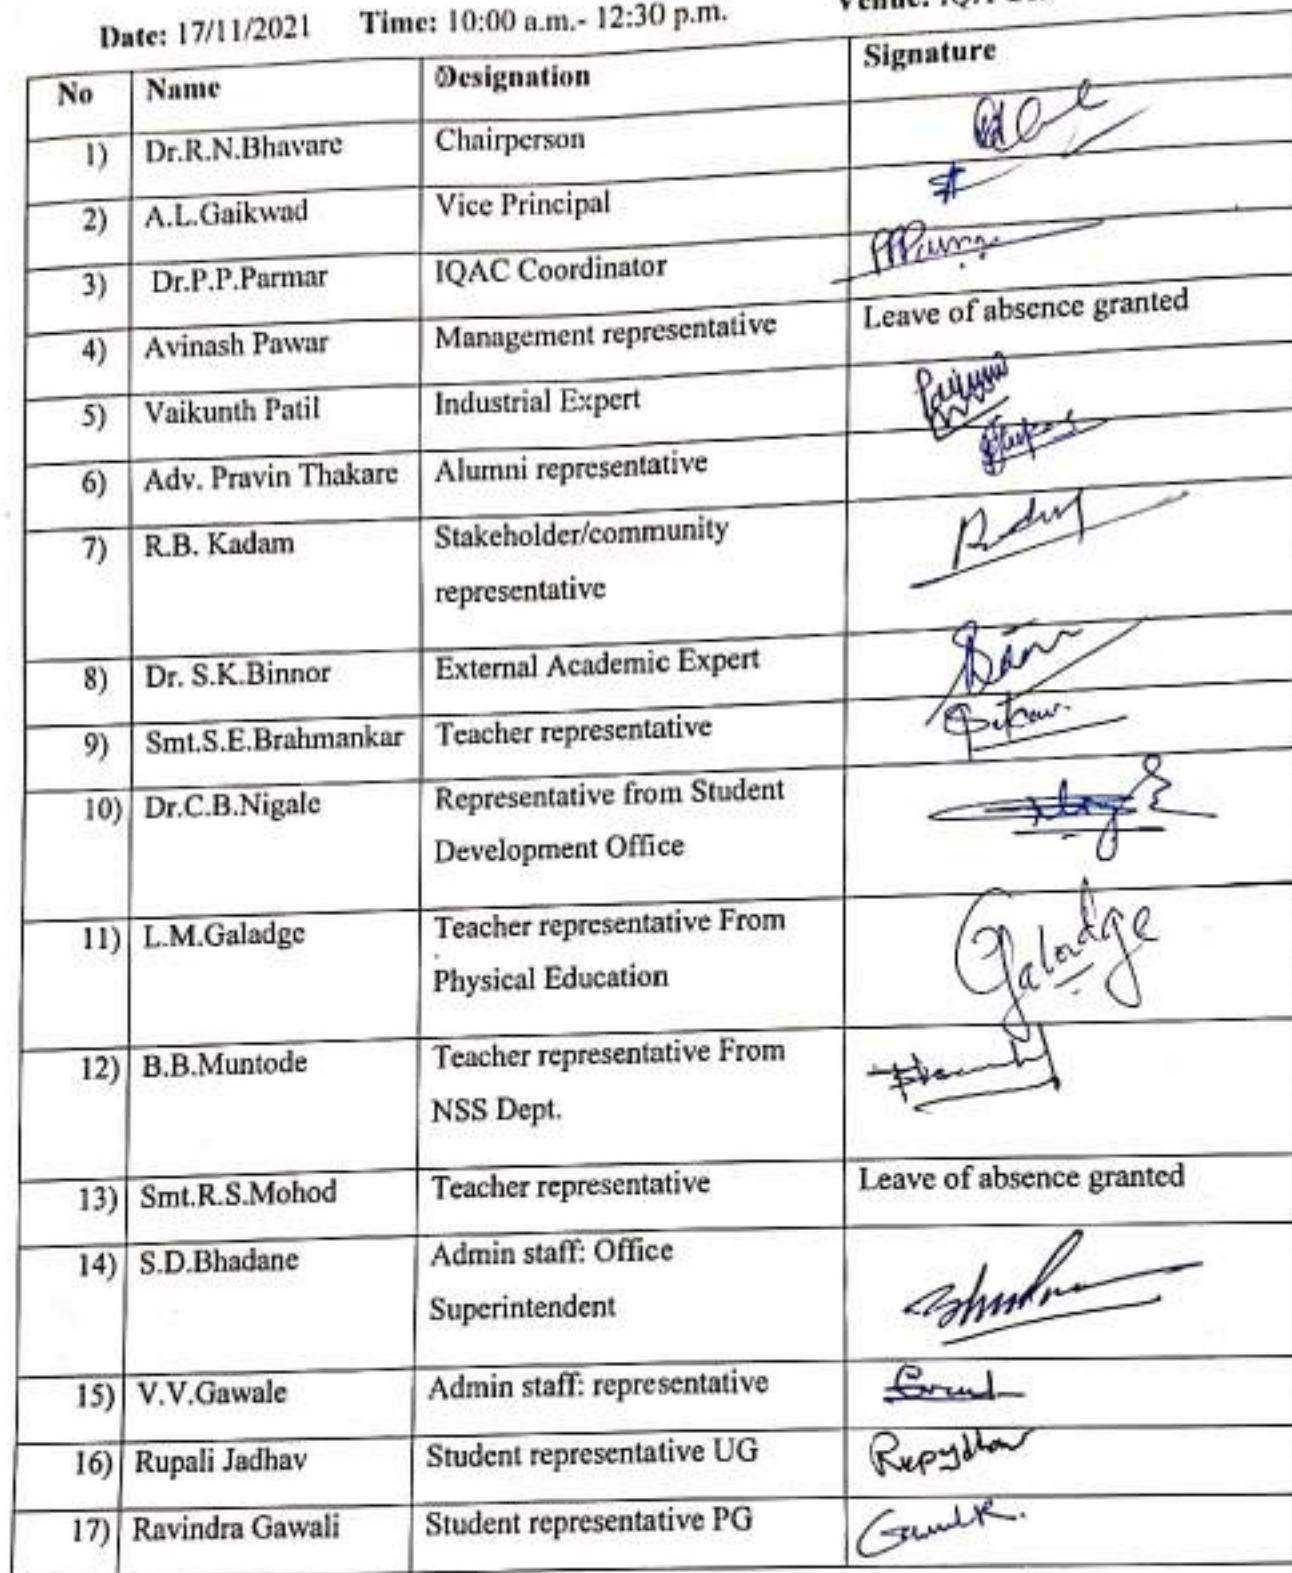 Date: 17/11/2021 Time: 10:00 a.m.- 12:30 p.m. Venue:
No Name Designation Signature
1) Dr.R.N.Bhavare Chairperson
2) A.L.Gaikwad Vice Principal
3) Dr.P.P.Parmar IQAC Coordinator
4) Avinash Pawar Management representative Leave of absence granted
5) Vaikunth Patil Industrial Expert
6) Adv. Pravin Thakare Alumni representative
7) R.B. Kadam Stakeholder/community
representative
8) Dr. S.K.Binnor External Academic Expert
9) Smt.S.E.Brahmankar Teacher representative
10) Dr.C.B.Nigale Representative from Student
Development Office
11) L.M.Galadge Teacher representative From Galadge
Physical Education
12) B.B.Muntode Teacher representative From
NSS Dept.
13) Smt.R.S.Mohod Teacher representative Leave of absence granted
14) S.D.Bhadane Admin staff: Office
Superintendent
15) V.V.Gawale Admin staff: representative
16) Rupali Jadhav Student representative UG
17) Ravindra Gawali Student representative PG